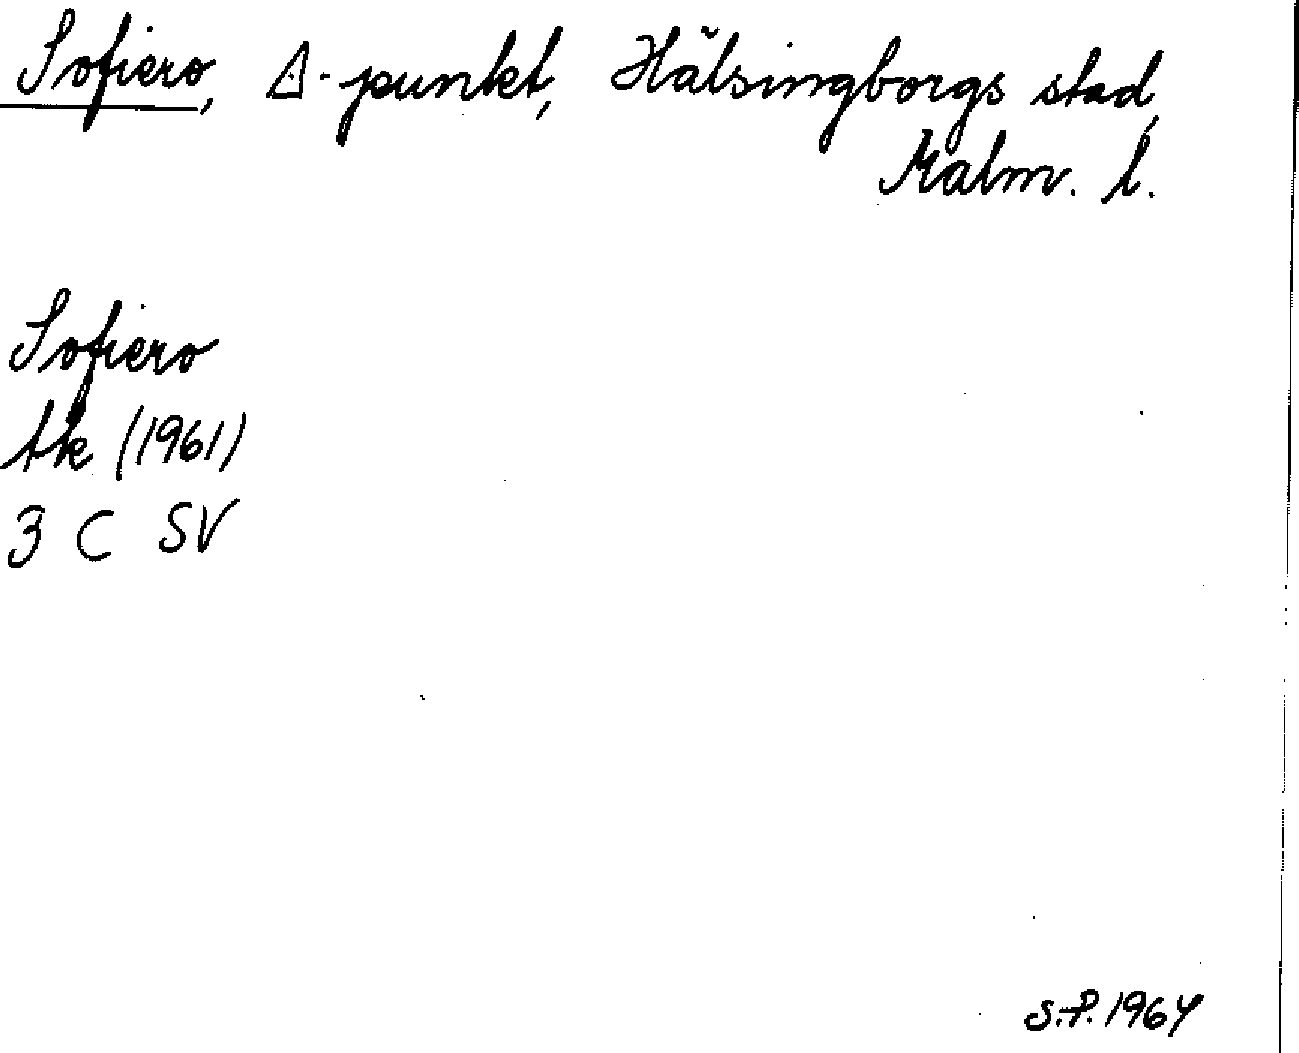 Sofiero, ∆-punkt, Hälsingborgs stad,
Malm. l.
Sofiero
tk (1961)
3 C SV
S.P. 1964